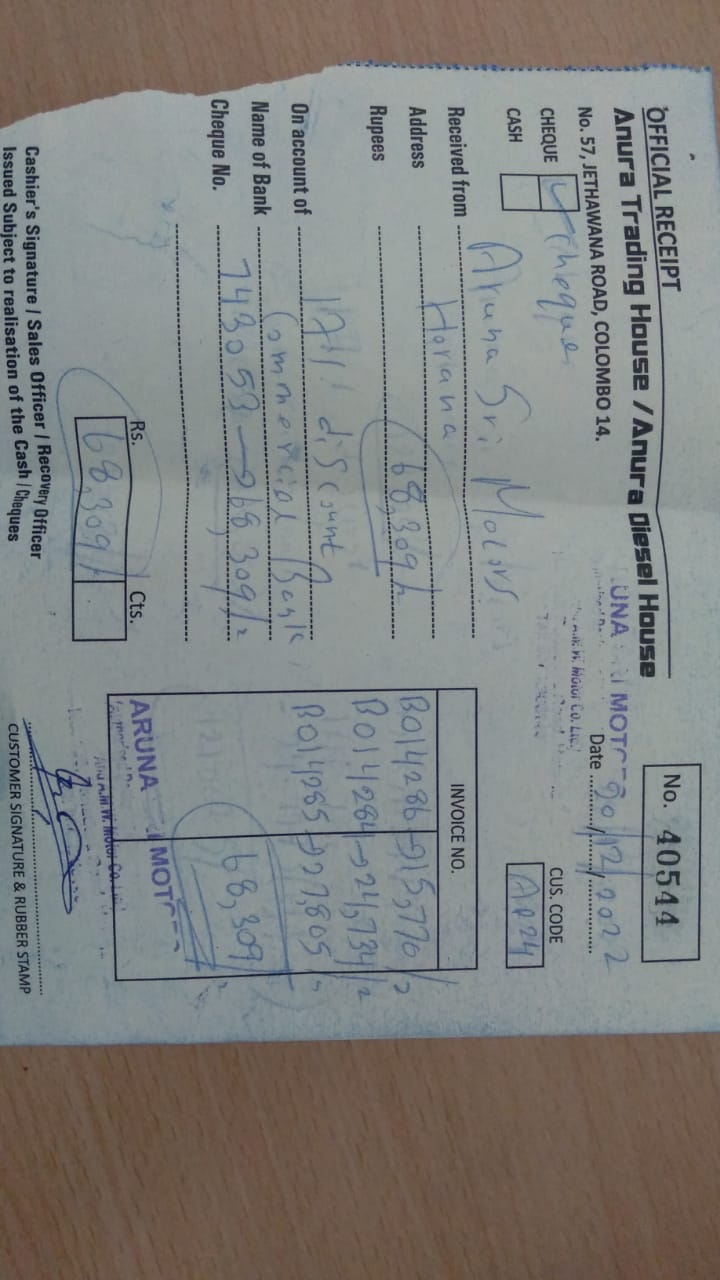 OFFICIAL RECEIPT
Anura Trading House / Anura Diesel House
No. 57, JETHAWANA ROAD, COLOMBO 14.
No. 40544
UNA MOTO
Date 20/12/2022
CHEQUE cheque
CASH
CUS. CODE
AR24
Received from Aruna Sri Motors
Address Horana
Rupees 68,309/-
On account of 17% discount
Name of Bank Commercial Bank
Cheque No. 743053 → 68,309/-
INVOICE NO.
B014286 → 15,770/-
B014284 → 24,734/-
B014285 → 27,805/-
68,309/-
Rs. Cts.
68,309/-
ARUNA MOTO
Cashier's Signature / Sales Officer / Recovery Officer
Issued Subject to realisation of the Cash / Cheques
CUSTOMER SIGNATURE & RUBBER STAMP